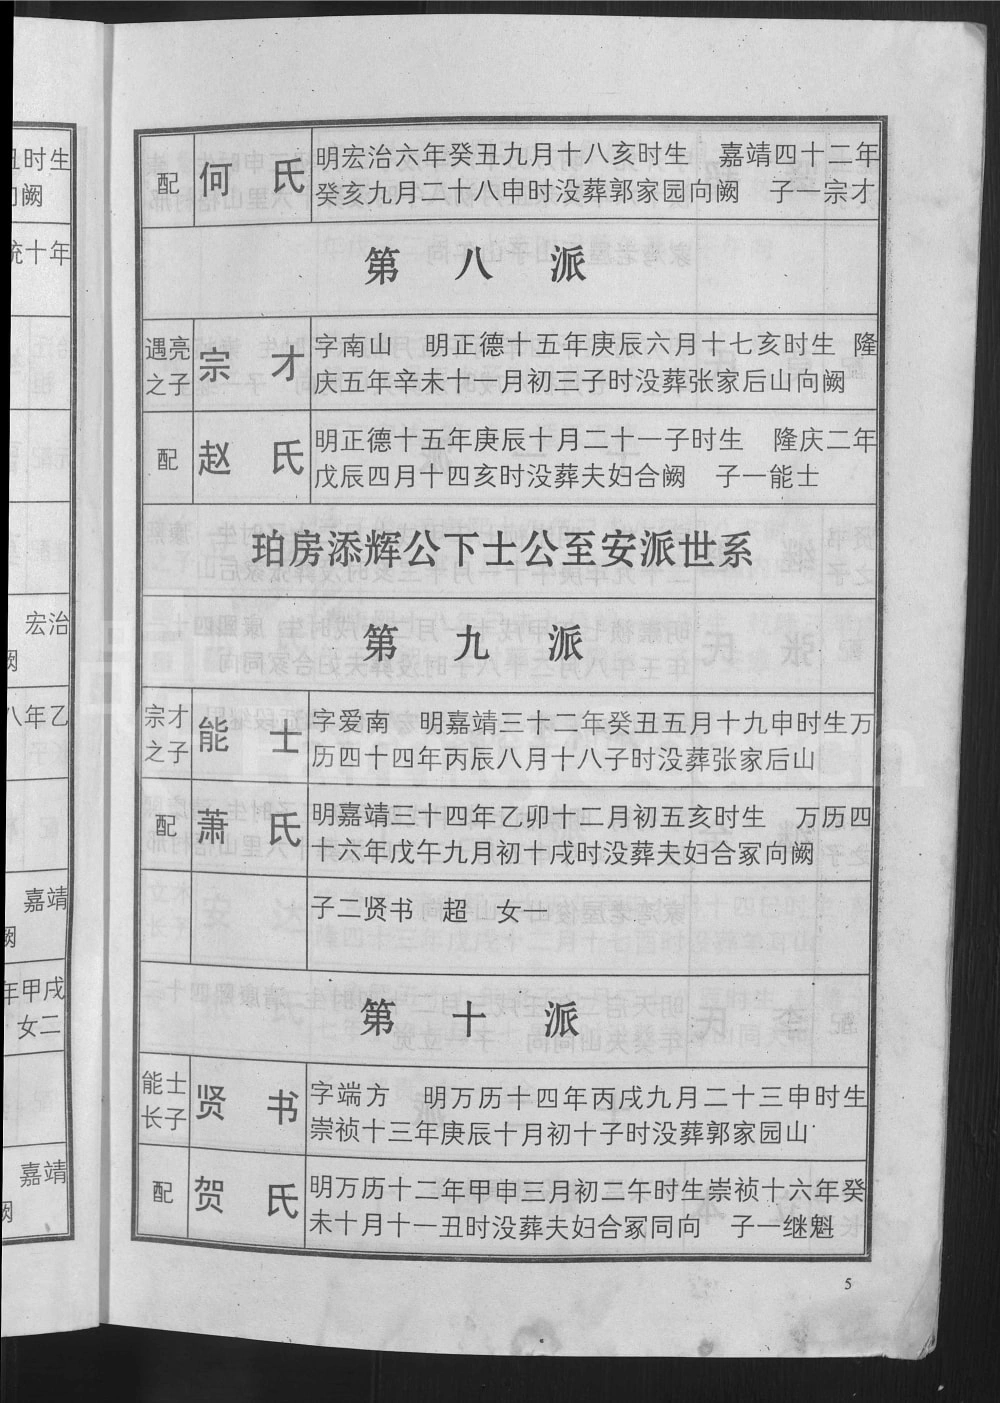 丑时生
向阙
统十年
宏治
阙
八年乙
嘉靖
阙
年甲戌
女二
嘉靖
阙
配 何 氏 明宏治六年癸丑九月十八亥时生 嘉靖四十二年
癸亥九月二十八申时没葬郭家园向阙 子一宗才
第 八 派
遇亮之子 宗 才 字南山 明正德十五年庚辰六月十七亥时生 隆
庆五年辛未十一月初三子时没葬张家后山向阙
配 赵 氏 明正德十五年庚辰十月二十一子时生 隆庆二年
戊辰四月十四亥时没葬夫妇合阙 子一能士
珀房添辉公下士公至安派世系
第 九 派
宗才之子 能 士 字爱南 明嘉靖三十二年癸丑五月十九申时生万
历四十四年丙辰八月十八子时没葬张家后山
配 萧 氏 明嘉靖三十四年乙卯十二月初五亥时生 万历四
十六年戊午九月初十戌时没葬夫妇合冢向阙
子二贤书 超 女一
第 十 派
能士长子 贤 书 字端方 明万历十四年丙戌九月二十三申时生
崇祯十三年庚辰十月初十子时没葬郭家园山
配 贺 氏 明万历十二年甲申三月初二午时生崇祯十六年癸
未十月十一丑时没葬夫妇合冢同向 子一继魁
5